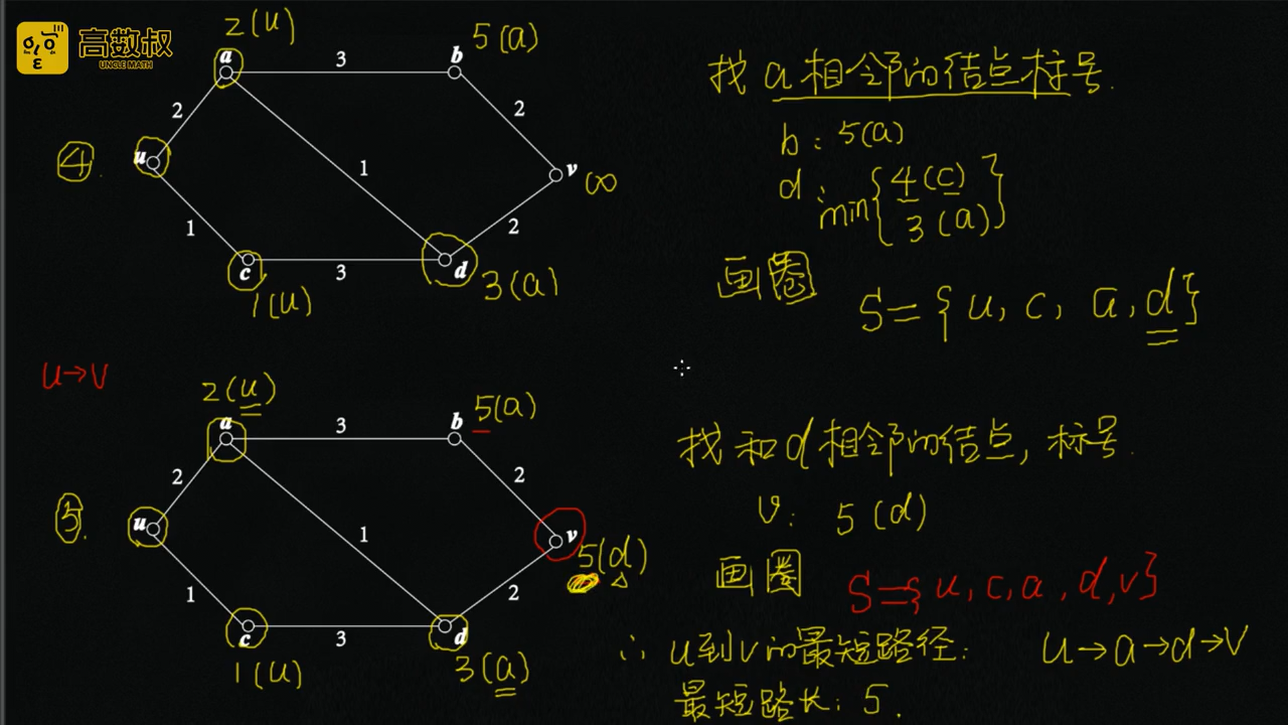 高数叔
UNCLE MATH
2(u)
a
3
b
5(a)
2
2
④.
u
1
v
∞
1
2
c
3
d
1(u)
3(a)
找a相邻的结点标号.
b: 5(a)
d: min{4(c)
3(a)}
画圈
S={u, c, a, d}
u→v
2(u)
a
3
b
5(a)
2
2
⑤.
u
1
v
5(d)
1
2
c
3
d
1(u)
3(a)
找和d相邻的结点, 标号.
v: 5(d)
画圈
S={u, c, a, d, v}
∴ u到v的最短路径: u→a→d→v
最短路长: 5.